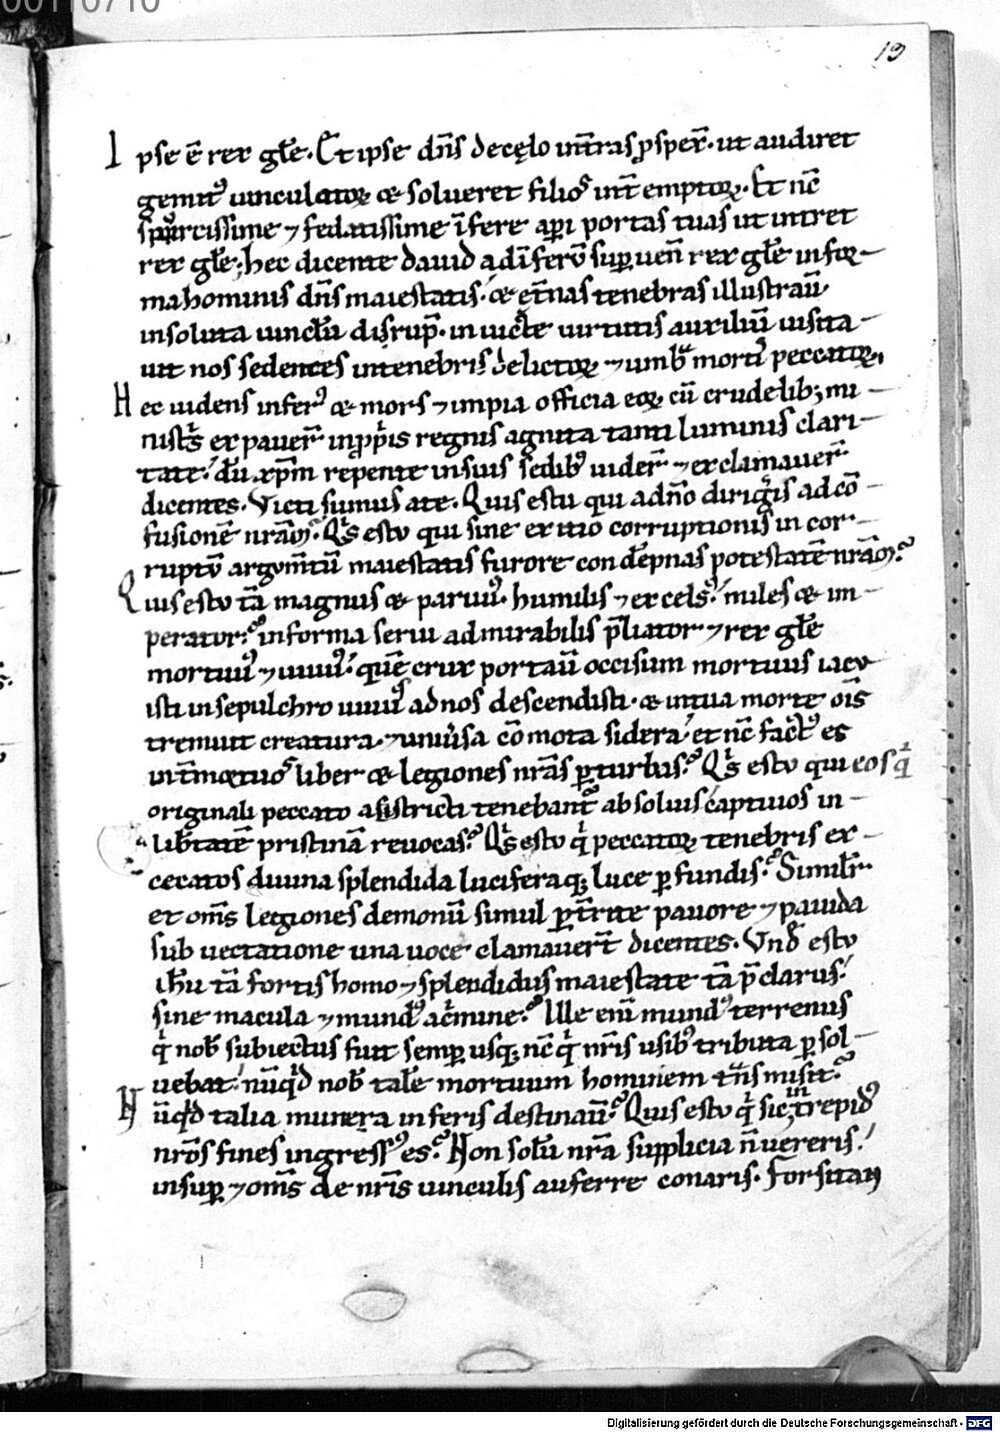 00110710
19
Ipse ē rex gl̄e. Et ipse dn̄s de cęlo in t̄ras ꝓspex̄. ut audiret
gemit᷒ uinculatoꝝ & solueret filios int̄emptoꝝ. Et nc̄
spurcissime ⁊ fedatissime īfere aperi portas tuas ut intret
rex gl̄e; hec dicente dauid ad īferū suꝑuen̄ rex gl̄e in foꝛ-
ma hominis dn̄s maiestatis. & et̄nas tenebras illustrau̅.
insoluta uincl̄a disrup̄. inuicte uirtutis auxiliū uisita-
uit nos sedentes in tenebris delictoꝝ ⁊ umb̄ morti᷒ peccatoꝝ.
Hec uidens infer᷒ & mors ⁊ impia officia eoꝝ cū crudelib; mi-
nistris expauer̄ in ꝓpriis regnis agnita tanti luminis clari-
tate. dū xp̄m repente in suis sedib᷒ uider̄ ⁊ exclamauer̄
dicentes. Victi sumus a te. Quis es tu qui ad dn̄o dirigis ad cō-
fusionē nr̄am. Qis es tu qui sine exitio corruptionis incor-
ruptū argum̄tū maiestatis furore condēpnas potestatē nr̄am?
Quis es tu tā magnus & paruu᷒. humilis ⁊ excels᷒. miles & im-
perator? in forma serui admirabilis p̄liator ⁊ rex gl̄e
mortuu᷒ ⁊ uiuu᷒. quē crux portau̅ occisum mortuus iacu-
isti in sepulchro uiuu᷒ ad nos descendisti. & in tua morte om̄s
tremuit creatura. ⁊ uniu̅sa cōmota sidera. et nc̄ fact᷒ es
int̄ mortuos liber & legiones nr̄as ꝑturbas? Qis es tu qui eos qi
originali peccato astricti tenebant᷒ absoluis captiuos in
lib̄tatē pristinā reuocas? Qis es tu qi peccatoꝝ tenebris ex-
cecatos diuina splendida luciferaq; luce ꝑfundis? Similit̄
et om̄s legiones demonū simul ꝑt̄rite pauore ⁊ pauida
subuectatione una uoce clamauer̄t dicentes. Vnd̄ es tu
ih̄u tā fortis homo ⁊ splendidus maiestate tā p̄clarus.
sine macula ⁊ mund᷒ a crimine? Ille eni̅ mund᷒ terrenus
qi nob̄ subiectus fuit semꝑ usq; nc̄ qi nr̄is usib᷒ tributa ꝑsol-
uebat. nūqid nob̄ talē mortuum hominem t̄ns misit?
Nūqid talia munera inferis destinau̅? Quis es tu qi sic intrepid᷒
nr̄os fines ingress᷒ es? Non solū nr̄a supplicia n̄ uereris.
insuꝑ ⁊ om̄s de nr̄is uinculis auferre conaris. Forsitan
Digitalisierung gefördert durch die Deutsche Forschungsgemeinschaft - DFG